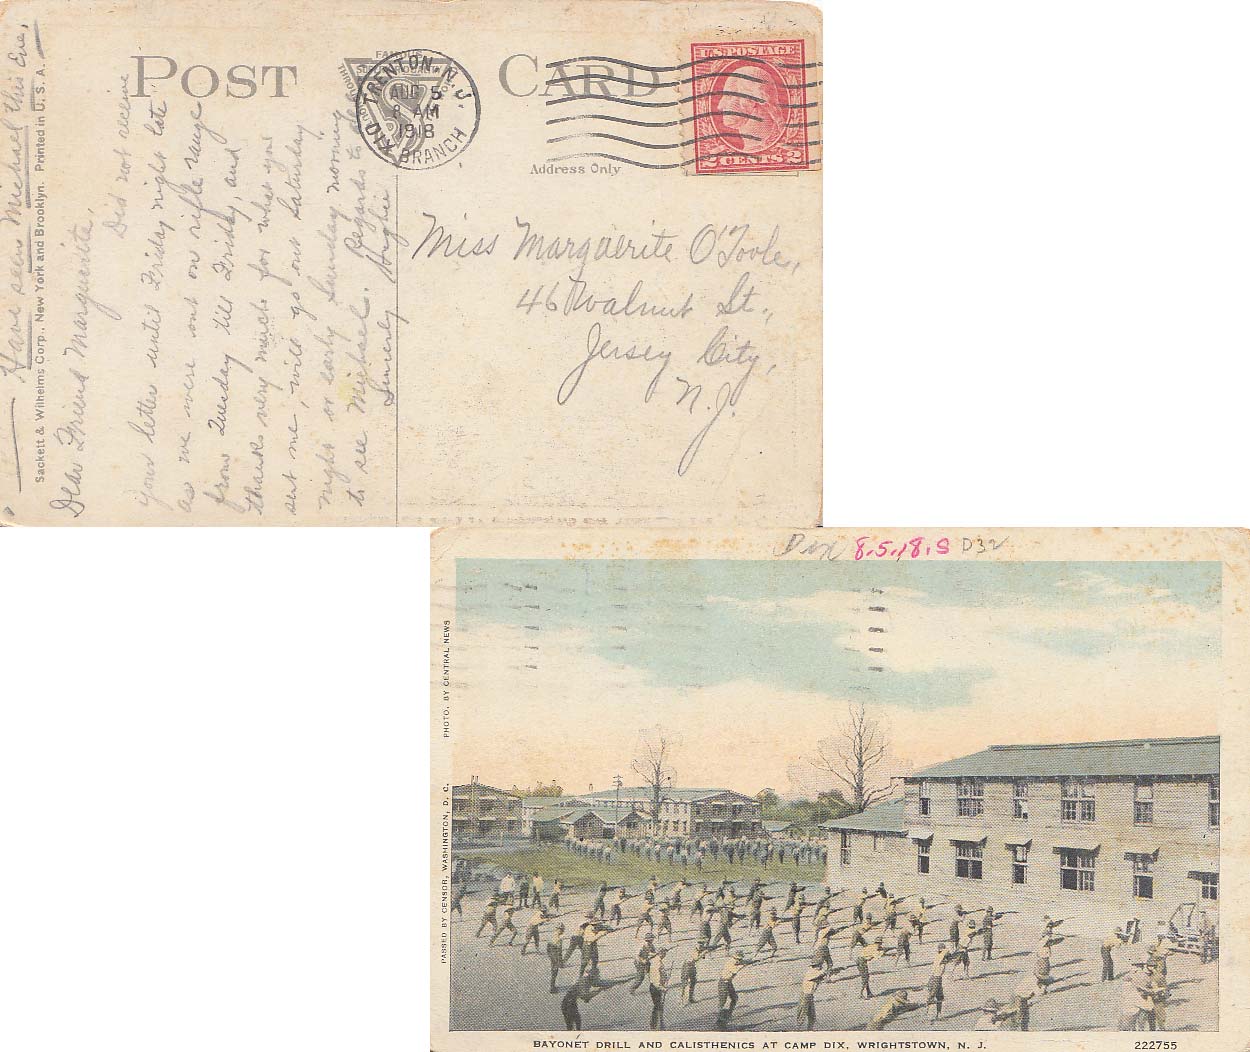 POST CARD
FAMOUS
TRENTON, N.J.
AUG 5
8 AM
1918
DIX BRANCH
U.S. POSTAGE
2 CENTS 2
Address Only
Miss Marguerite O'Toole,
46 Walnut St.,
Jersey City,
N.J.
Have seen Michael this Eve,
Sackett & Wilhelms Corp., New York and Brooklyn. Printed in U. S. A.
Dear Friend Marguerite,
Did not receive
your letter until Friday night late
as we were out on rifle range
from Tuesday till Friday, and
thanks very much for what you
sent me, will go out Saturday
night or early Sunday morning
to see Michael. Regards to all
Sincerely Hughie
Dix 8.5.18.S D32
PHOTO. BY CENTRAL NEWS
PASSED BY CENSOR, WASHINGTON, D. C.
BAYONET DRILL AND CALISTHENICS AT CAMP DIX, WRIGHTSTOWN, N. J.
222755